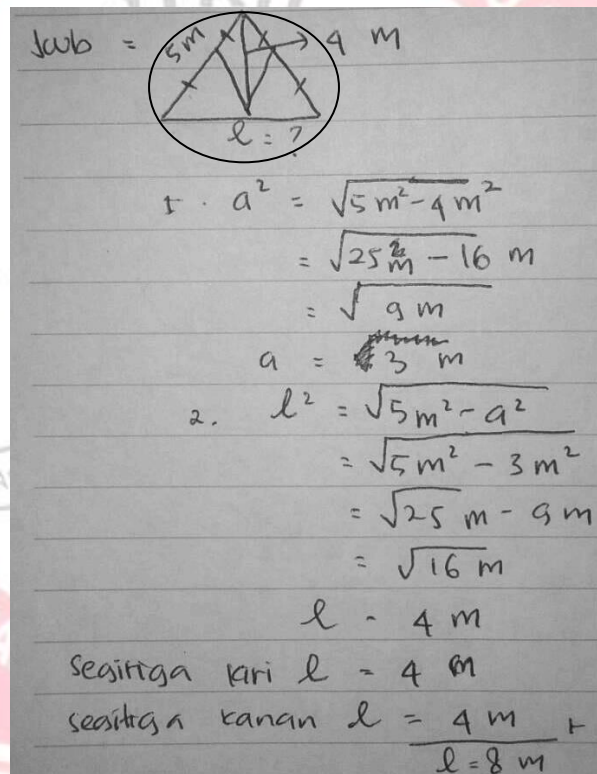 Jwb = 5m 4 m
l = ?
1. a² = √5m² - 4m²
= √25m² - 16 m
= √9m
a = 3 m
2. l² = √5m² - a²
= √5m² - 3m²
= √25 m - 9m
= √16 m
l - 4 m
Segitiga kiri l = 4 m
segitiga kanan l = 4 m +
l = 8 m